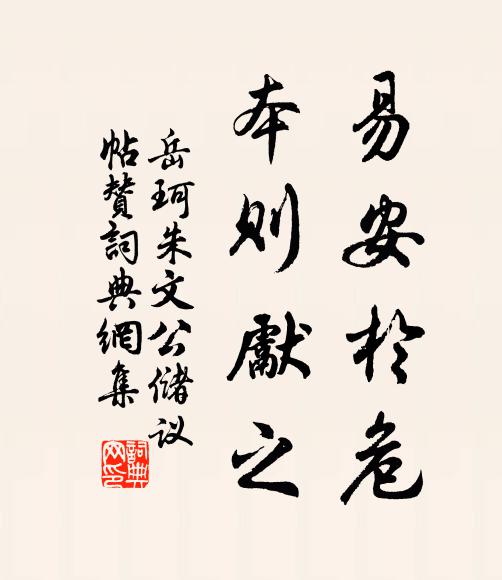 易安於危
本則獻之
岳珂朱文公储议
帖贊詞典網集
詞典
网印